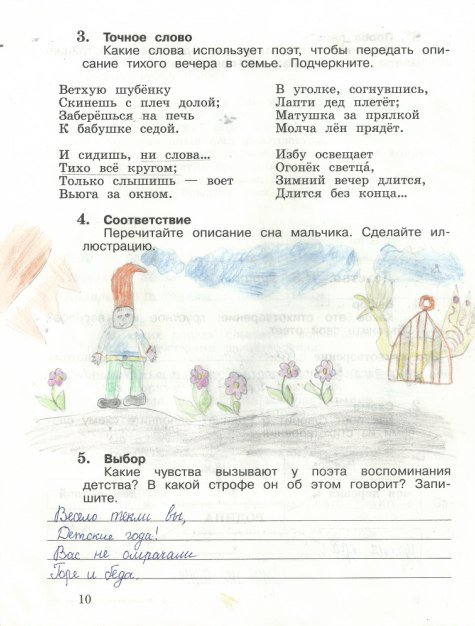 3. Точное слово
Какие слова использует поэт, чтобы передать опи-
сание тихого вечера в семье. Подчеркните.
Ветхую шубёнку
Скинешь с плеч долой;
Заберёшься на печь
К бабушке седой.
И сидишь, ни слова...
Тихо всё кругом;
Только слышишь — воет
Вьюга за окном.
В уголке, согнувшись,
Лапти дед плетёт;
Матушка за прялкой
Молча лён прядёт.
Избу освещает
Огонёк светца́,
Зимний вечер длится,
Длится без конца...
4. Соответствие
Перечитайте описание сна мальчика. Сделайте ил-
люстрацию.
5. Выбор
Какие чувства вызывают у поэта воспоминания
детства? В какой строфе он об этом говорит? Запи-
шите.
Весело текли вы,
Детские года!
Вас не омрачали
Горе и беда.
10